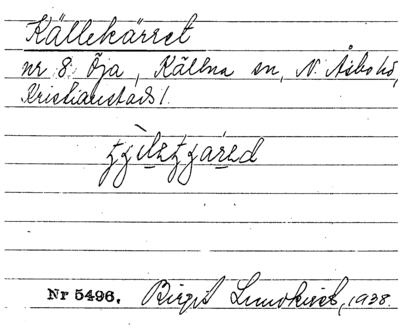 Källekärret
nr 8 Öja, Källna sn, N. Åsbo hd,
Kristianstads l.
Nr 5496. Birgit Lundkvist, 1938.